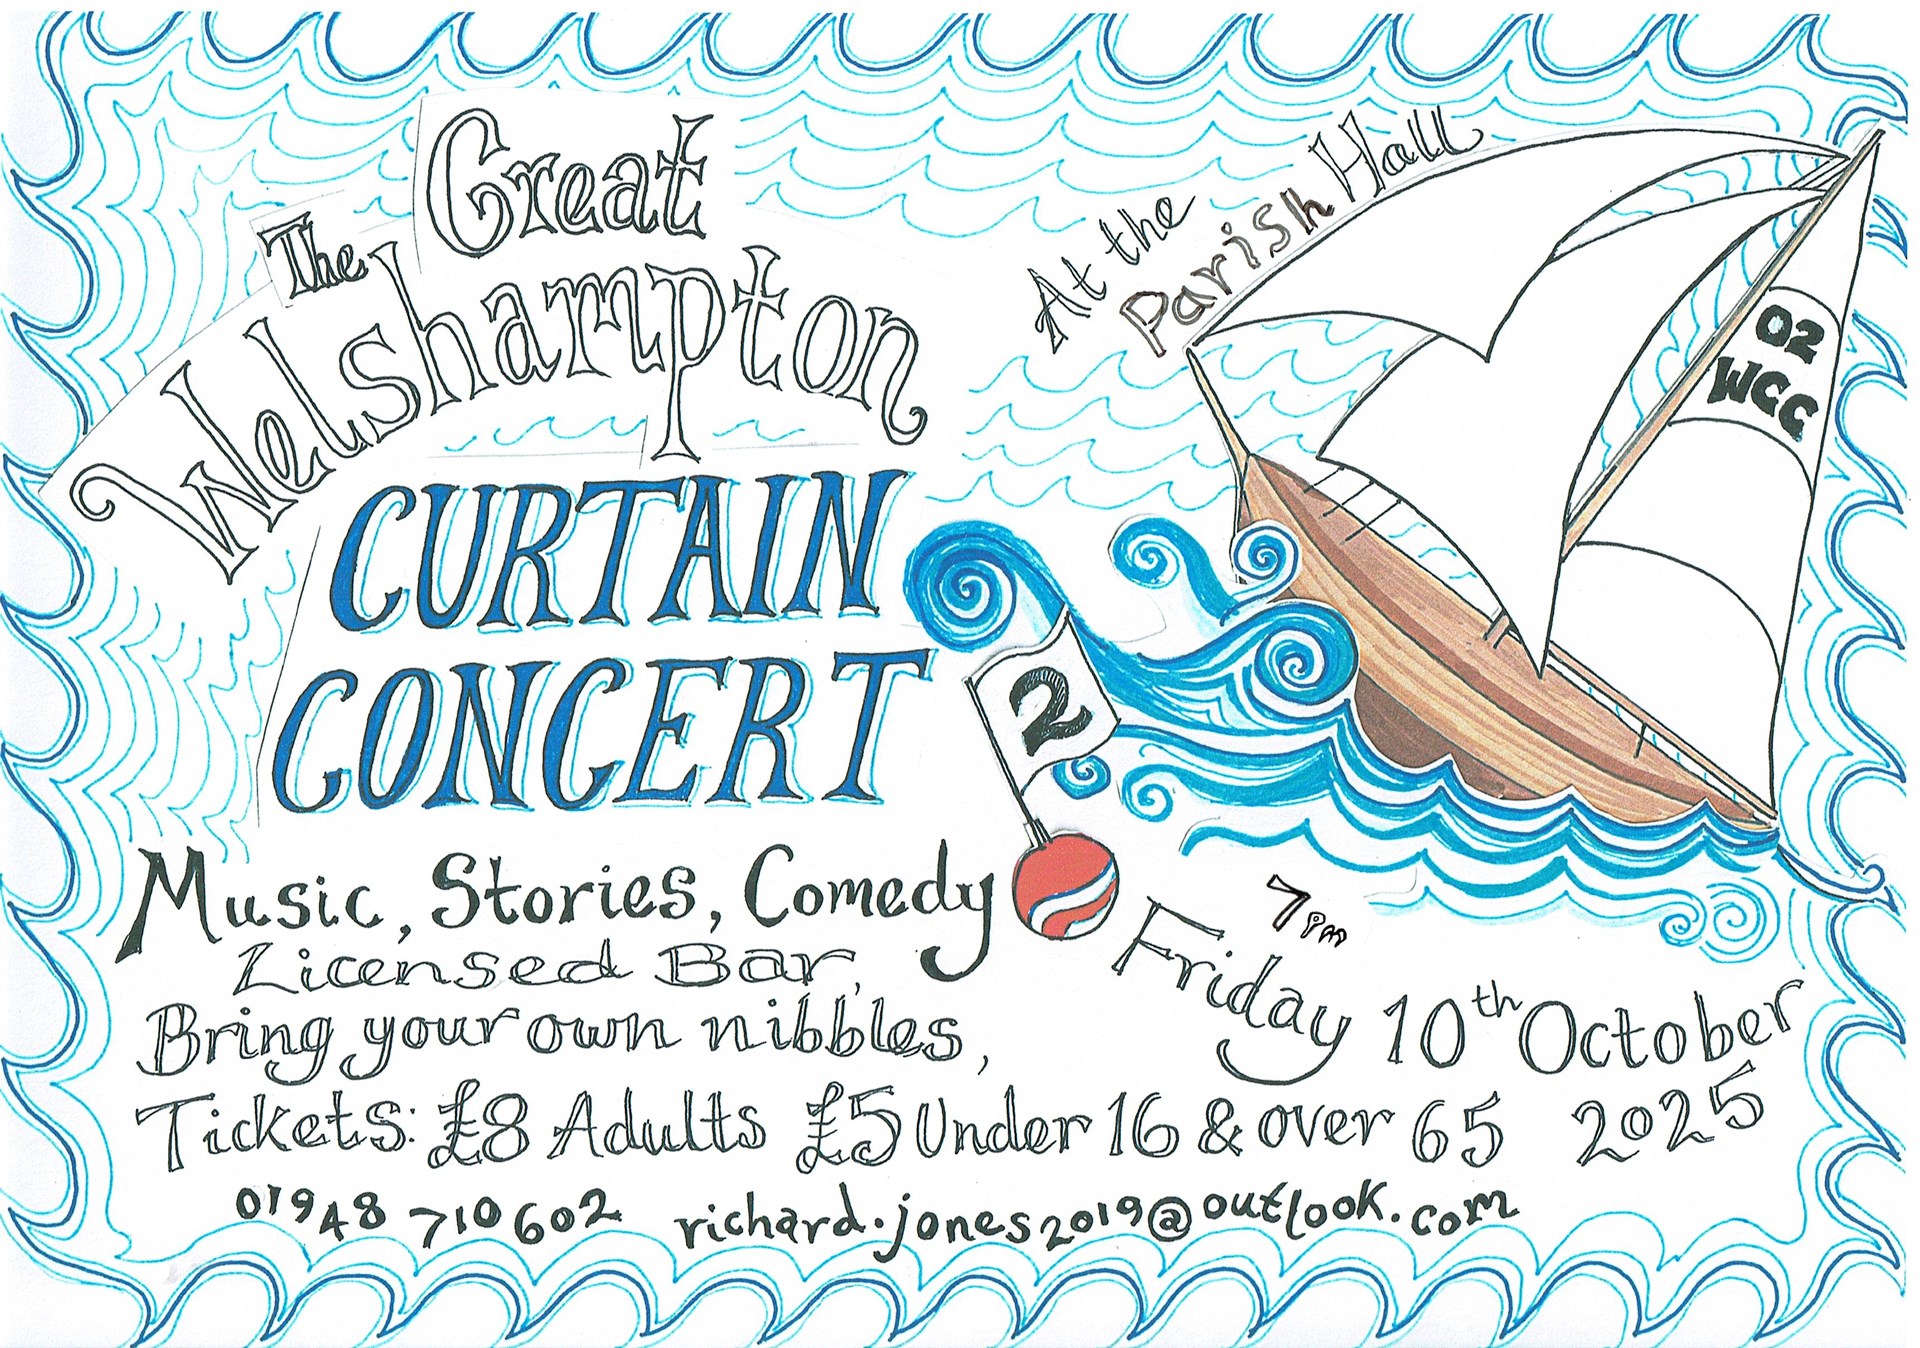 The Great
Welshampton
CURTAIN
CONCERT
At the
Parish Hall
02
WCC
2
Music, Stories, Comedy
Licensed Bar,
Bring your own nibbles,
Tickets: £8 Adults £5 Under 16 & over 65
7pm
Friday 10th October
2025
01948 710602 richard.jones2019@outlook.com